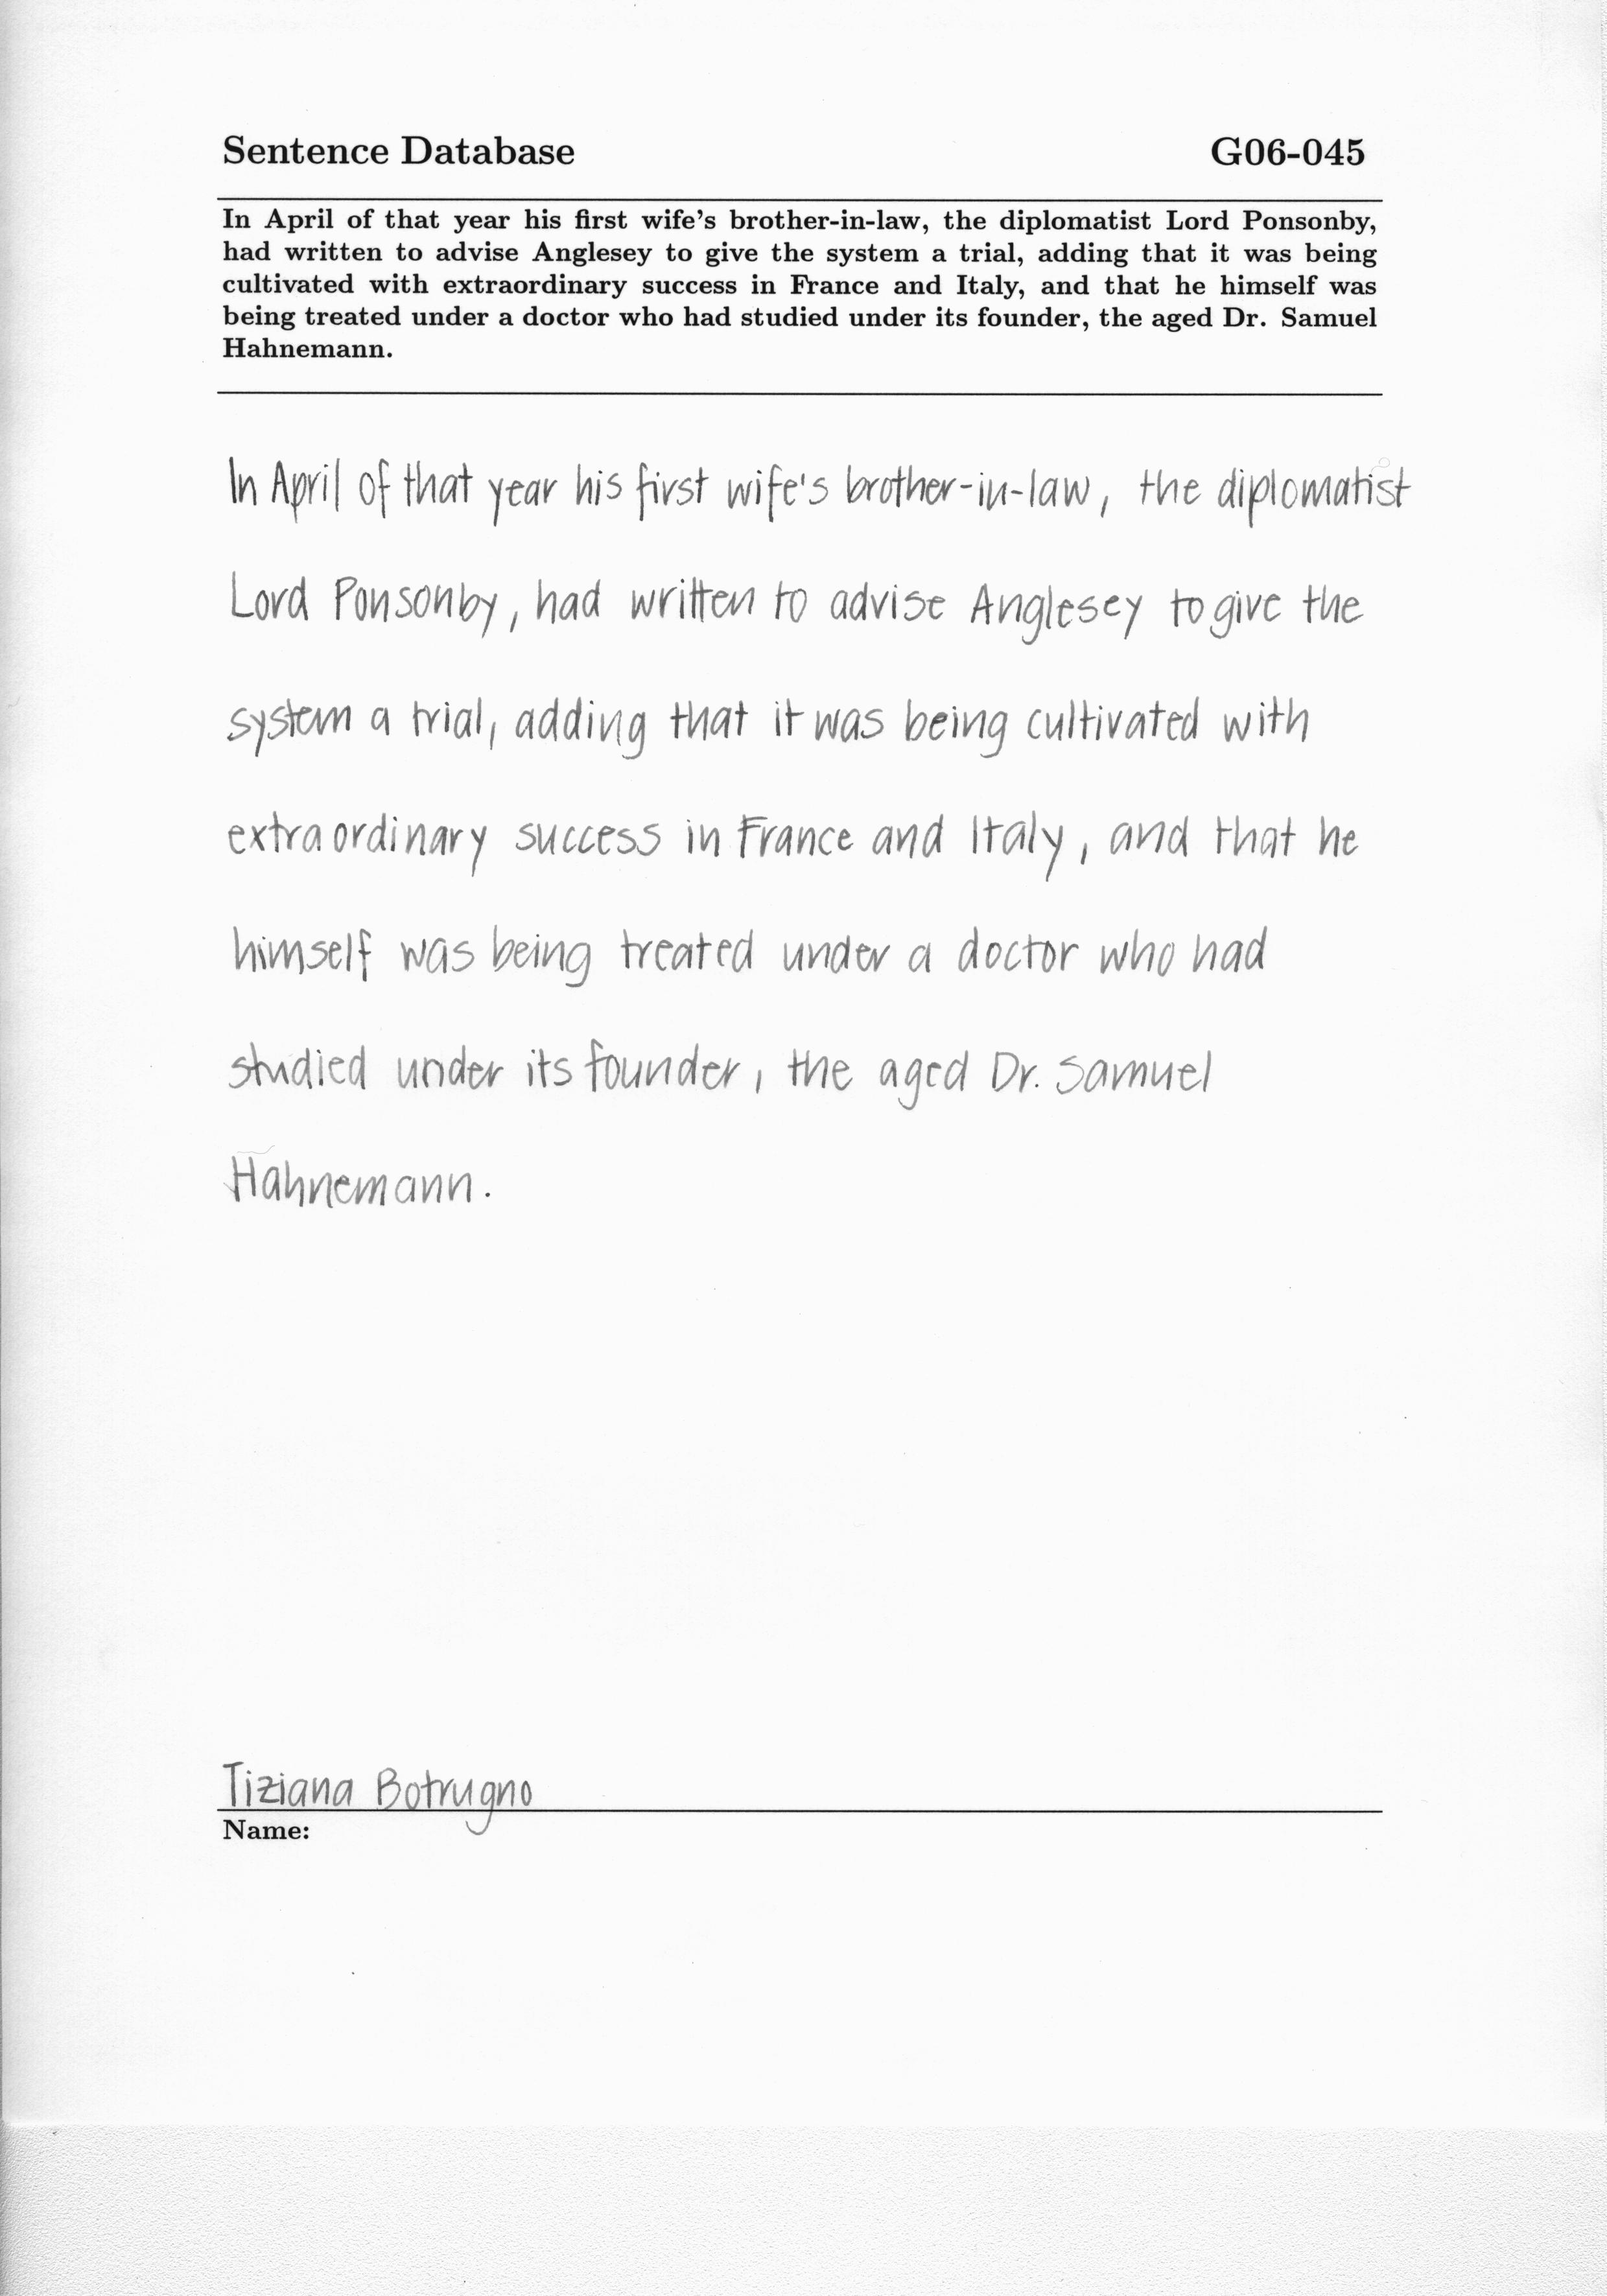 Sentence Database G06-045
In April of that year his first wife's brother-in-law, the diplomatist Lord Ponsonby,
had written to advise Anglesey to give the system a trial, adding that it was being
cultivated with extraordinary success in France and Italy, and that he himself was
being treated under a doctor who had studied under its founder, the aged Dr. Samuel
Hahnemann.
In April of that year his first wife's brother-in-law, the diplomatist
Lord Ponsonby, had written to advise Anglesey to give the
system a trial, adding that it was being cultivated with
extraordinary success in France and Italy, and that he
himself was being treated under a doctor who had
studied under its founder, the aged Dr. Samuel
Hahnemann.
Tiziana Botrugno
Name: